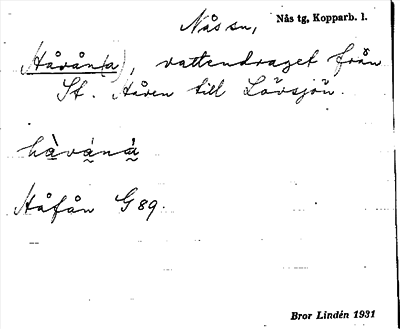 Nås sn, Nås tg, Kopparb. l.
Håvån(a), vattendraget från
St. Håen till Lövsjön.
hàvánà
Håfån G 89.
Bror Lindén 1931